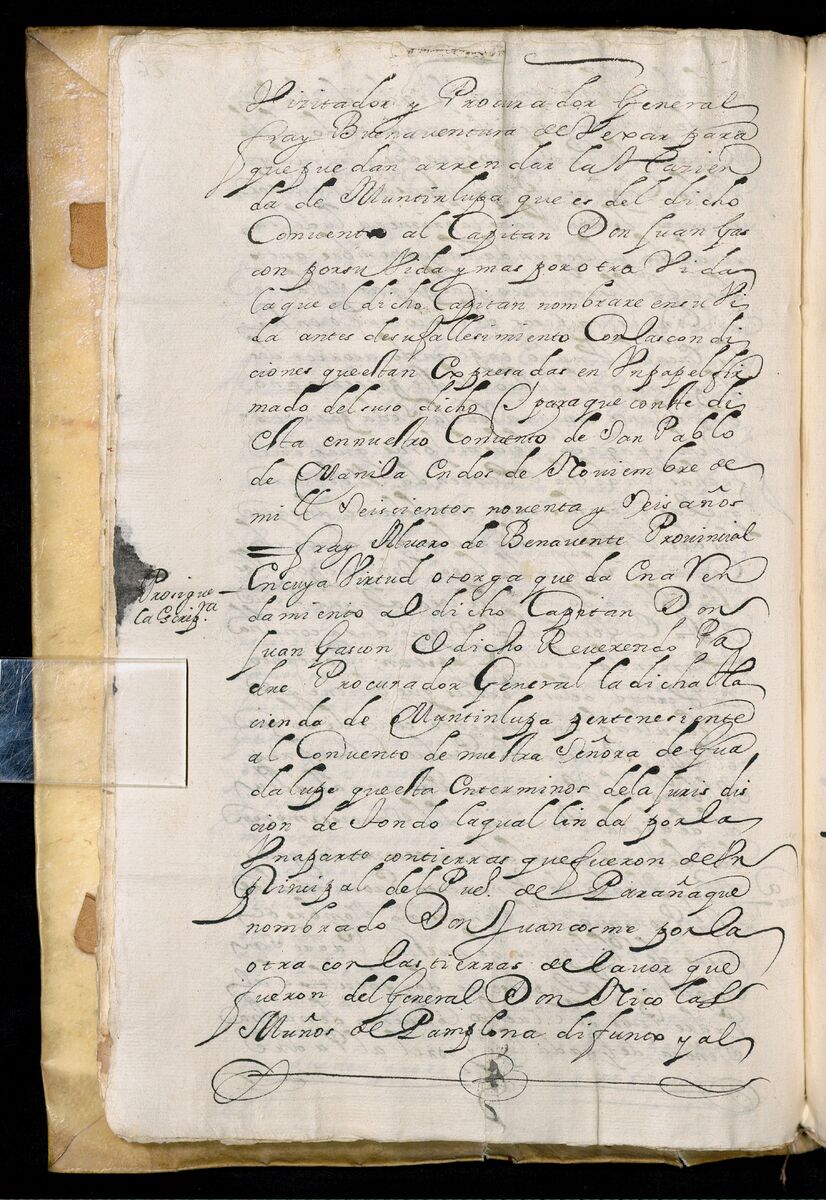 Vizitador y Procurador General
fray Buenaventura de Vexar para
que puedan arrendar la Hazien
da de Muntinlupa que es del dicho
Convento al Capitan Don Juan Gas
con por su Vida y mas por otra Vida
la que el dicho Capitan nombrare en su Vi
da antes de su fallesimiento Con las condi
ciones que estan Expresadas en Vn papel fir
mado del suso dicho y para que conste di
esta en nuestro Convento de San Pablo
de Manila En dos de Noviembre de
mill Seiscientos noventa y Seis años
= fray Alvaro de Benavente Provincial
Prosigue la Escrip.ra
En cuya Virtud otorga que da En a Ren
damiento al dicho Capitan Don
Juan Gascon el dicho Reverendo Pa
dre Procurador General la dicha Ha
cienda de Muntinlupa pertenesiente
al Convento de nuestra Señora de Gua
dalupe que esta En terminos de la Juris dis
cion de Tondo la qual linda por la
Vna parte con tierras que fueron de Vn
Principal del Pueb. de Parañaque
nombrado Don Juan cosme por la
otra con las tierras de lavor que
fueron del General Don Nicolas
Muños de Pamplona difunto y al